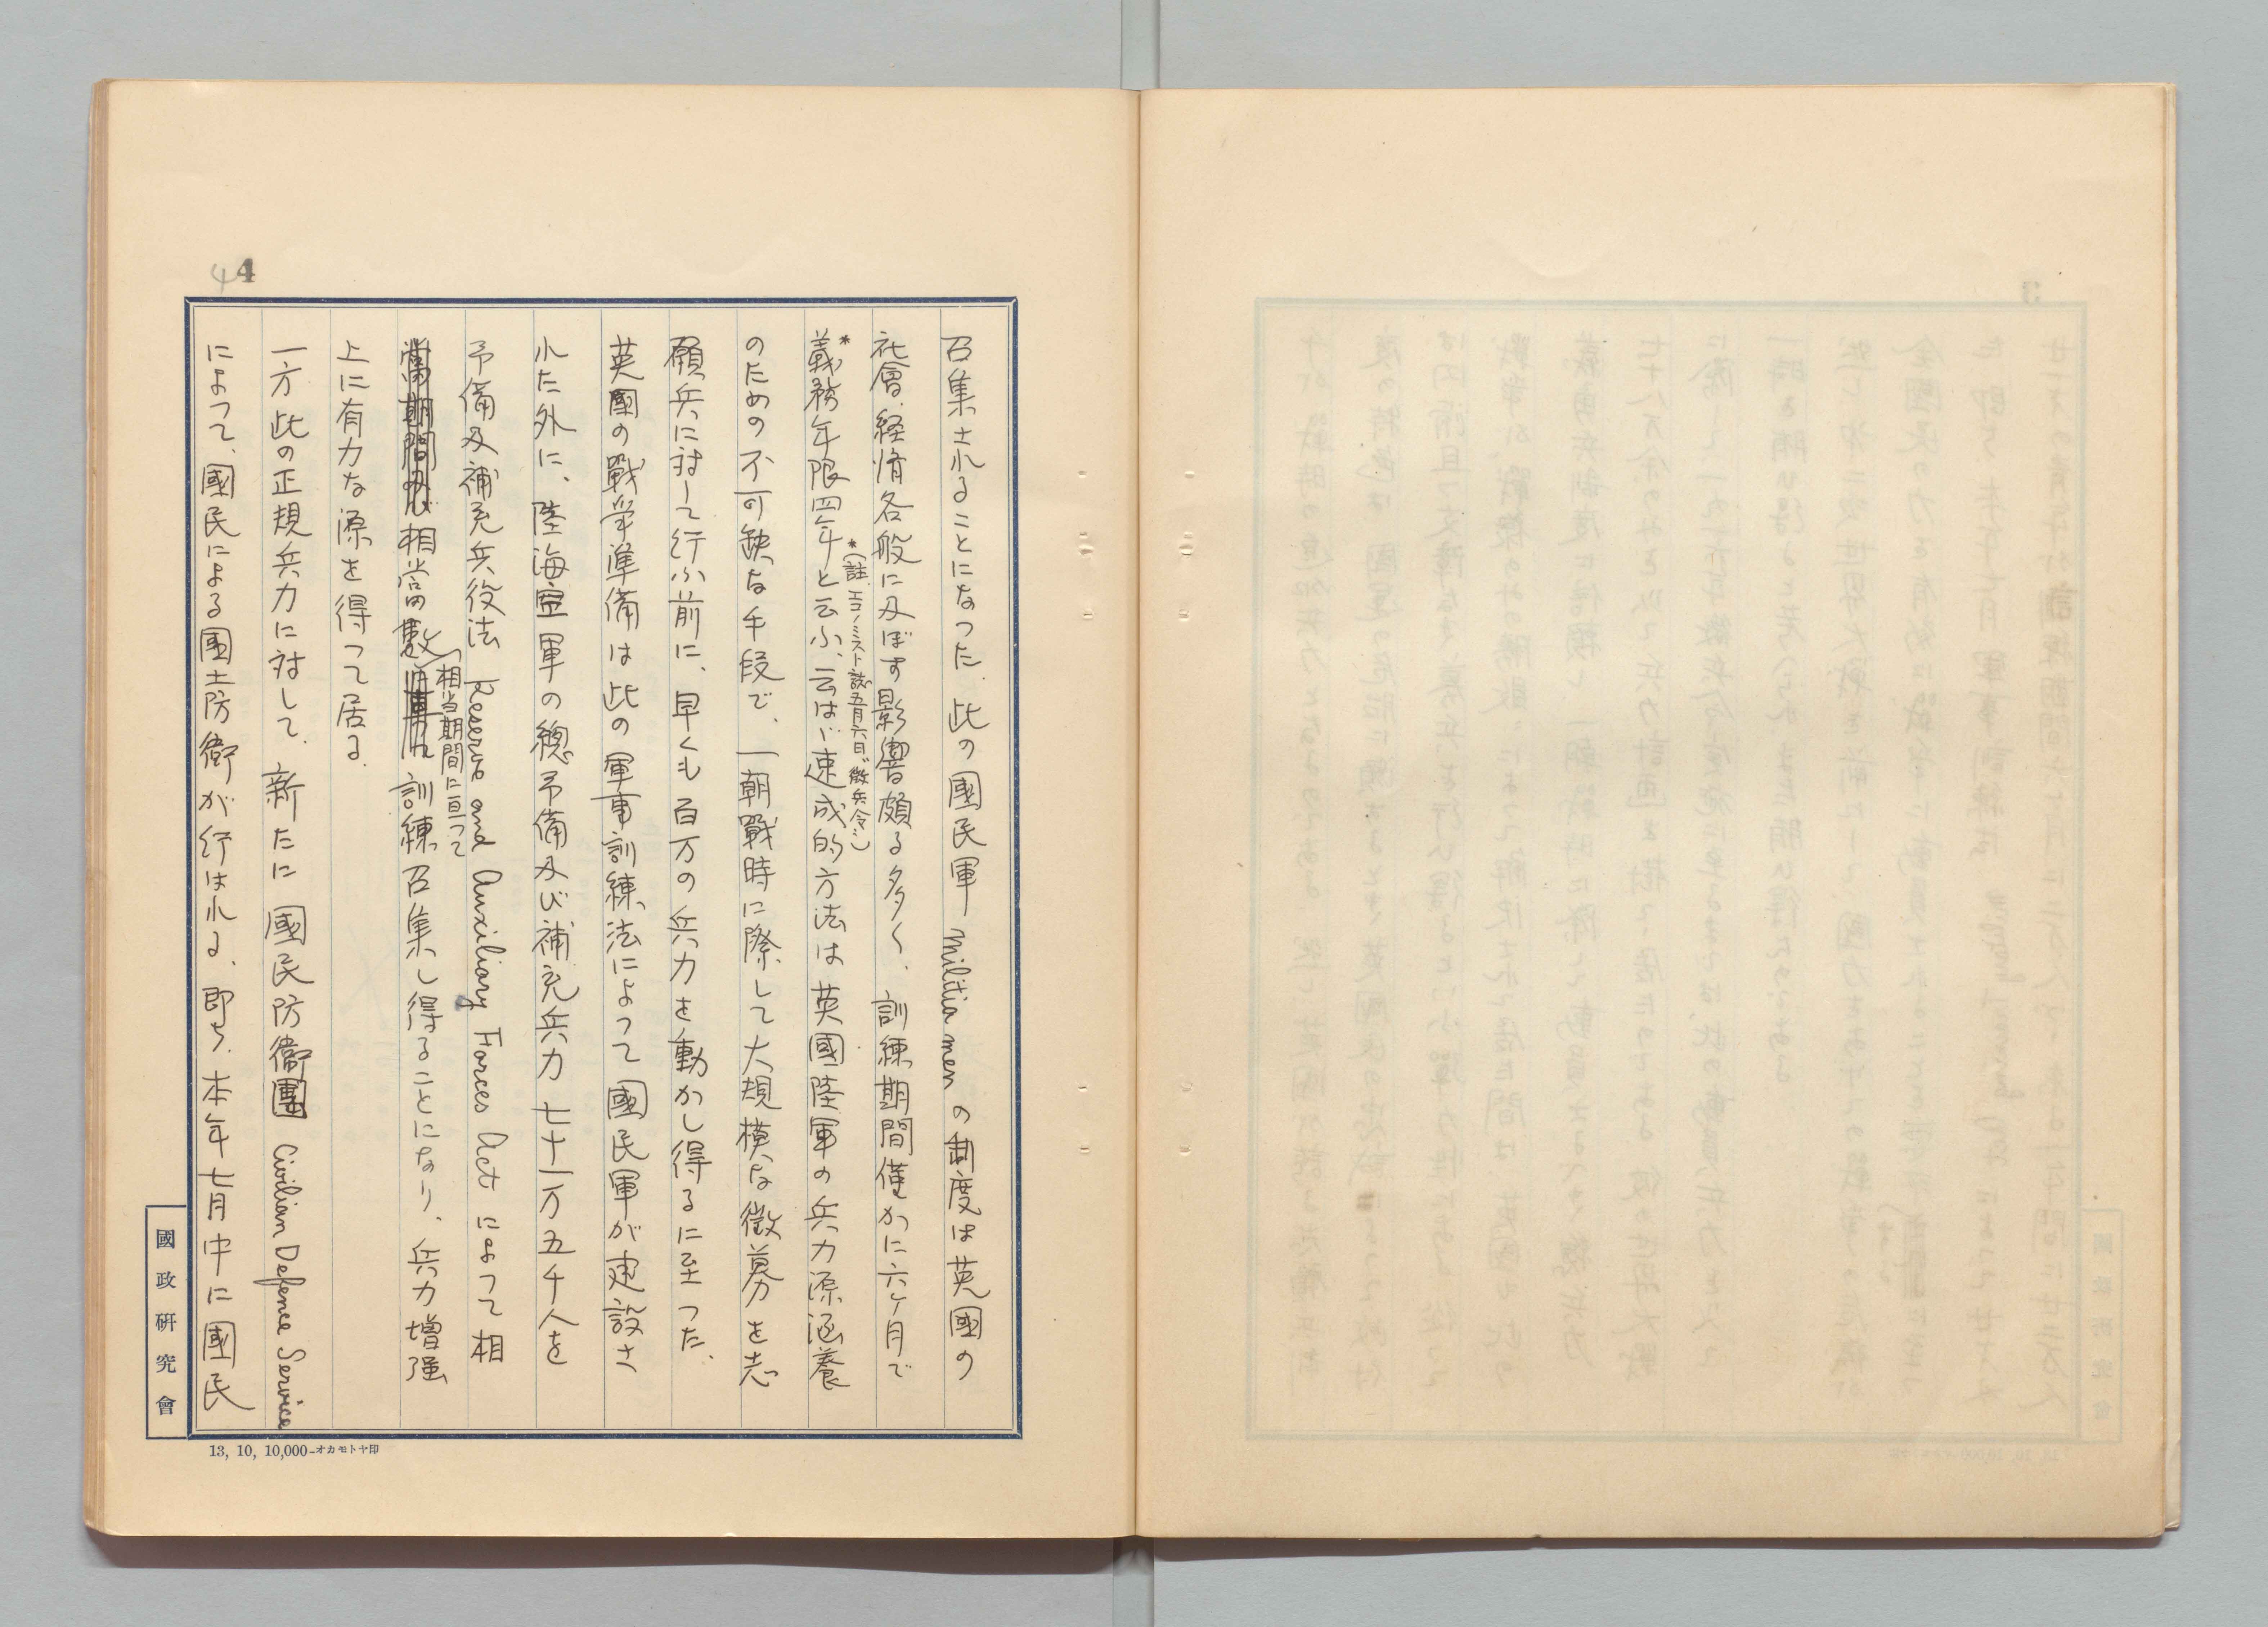 4
4
召集されることになつた. 此の國民軍 Militia men の制度は英國の
社會. 経済各般に及ぼす影響頗る多く、訓練期間僅かに六ヶ月で
*(註. エコノミスト誌五月六日"徴兵令")
*義務年限四年と云ふ、云はゞ速成的方法は英國陸軍の兵力源涵養
のための不可缺な手段で、一朝戰時に際して大規模な徴募を志
願兵に対して行ふ前に、早くも百万の兵力を動かし得るに至つた、
英國の戰争準備は此の軍事訓練法によつて國民軍が建設さ
れた外に、陸海空軍の總予備及び補充兵力七十一万五千人を
予備及補充兵役法 Reserve and Auxiliary Forces Act によつて相
相当期間に亘つて
當期間及び相当数訓練召集し得ることになり、兵力増强
上に有力な源を得つて居る.
一方此の正規兵力に対して、新たに國民防衛團 Civilian Defence Service
によつて、國民による國土防衛が行はれる、即ち、本年七月中に國民
國政研究會
13, 10, 10,000-オカモトヤ印